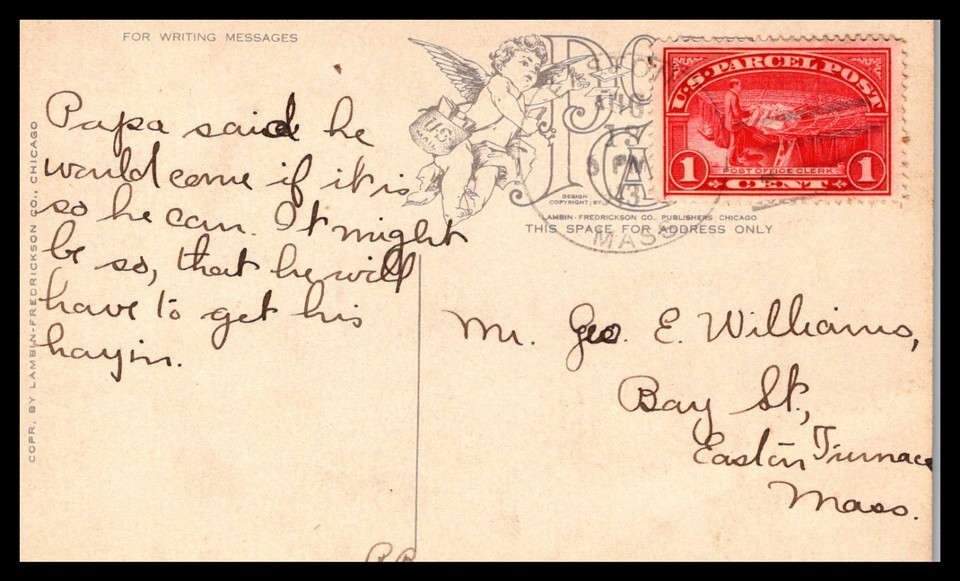 FOR WRITING MESSAGES
COPR, BY LAMBIN-FREDRICKSON CO., CHICAGO
Papa said he
would come if it is
so he can. It might
be so, that he will
have to get his
hayin.
U.S.
MAIL
DESIGN
COPYRIGHT; BY
LAMBIN-FREDRICKSON CO. PUBLISHERS CHICAGO
THIS SPACE FOR ADDRESS ONLY
AUG
6 PM
MASS
U.S. PARCEL POST
POST OFFICE CLERK
1 CENT 1
Mr. Geo. E. Williams,
Bay St.,
Easton Furnace
Mass.